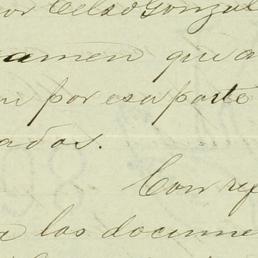 por Celso Gonzal
amen que a
n por esa parte
ados.
Con re
a los docume